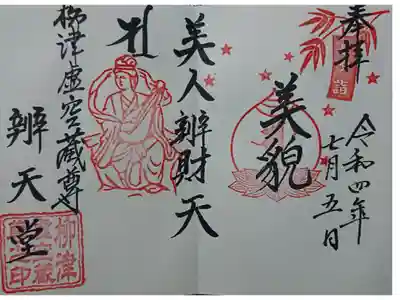 奉拝
詣
令和四年
七月五日
美貌
美人辨財天
柳津虚空蔵尊
辨天堂
柳津